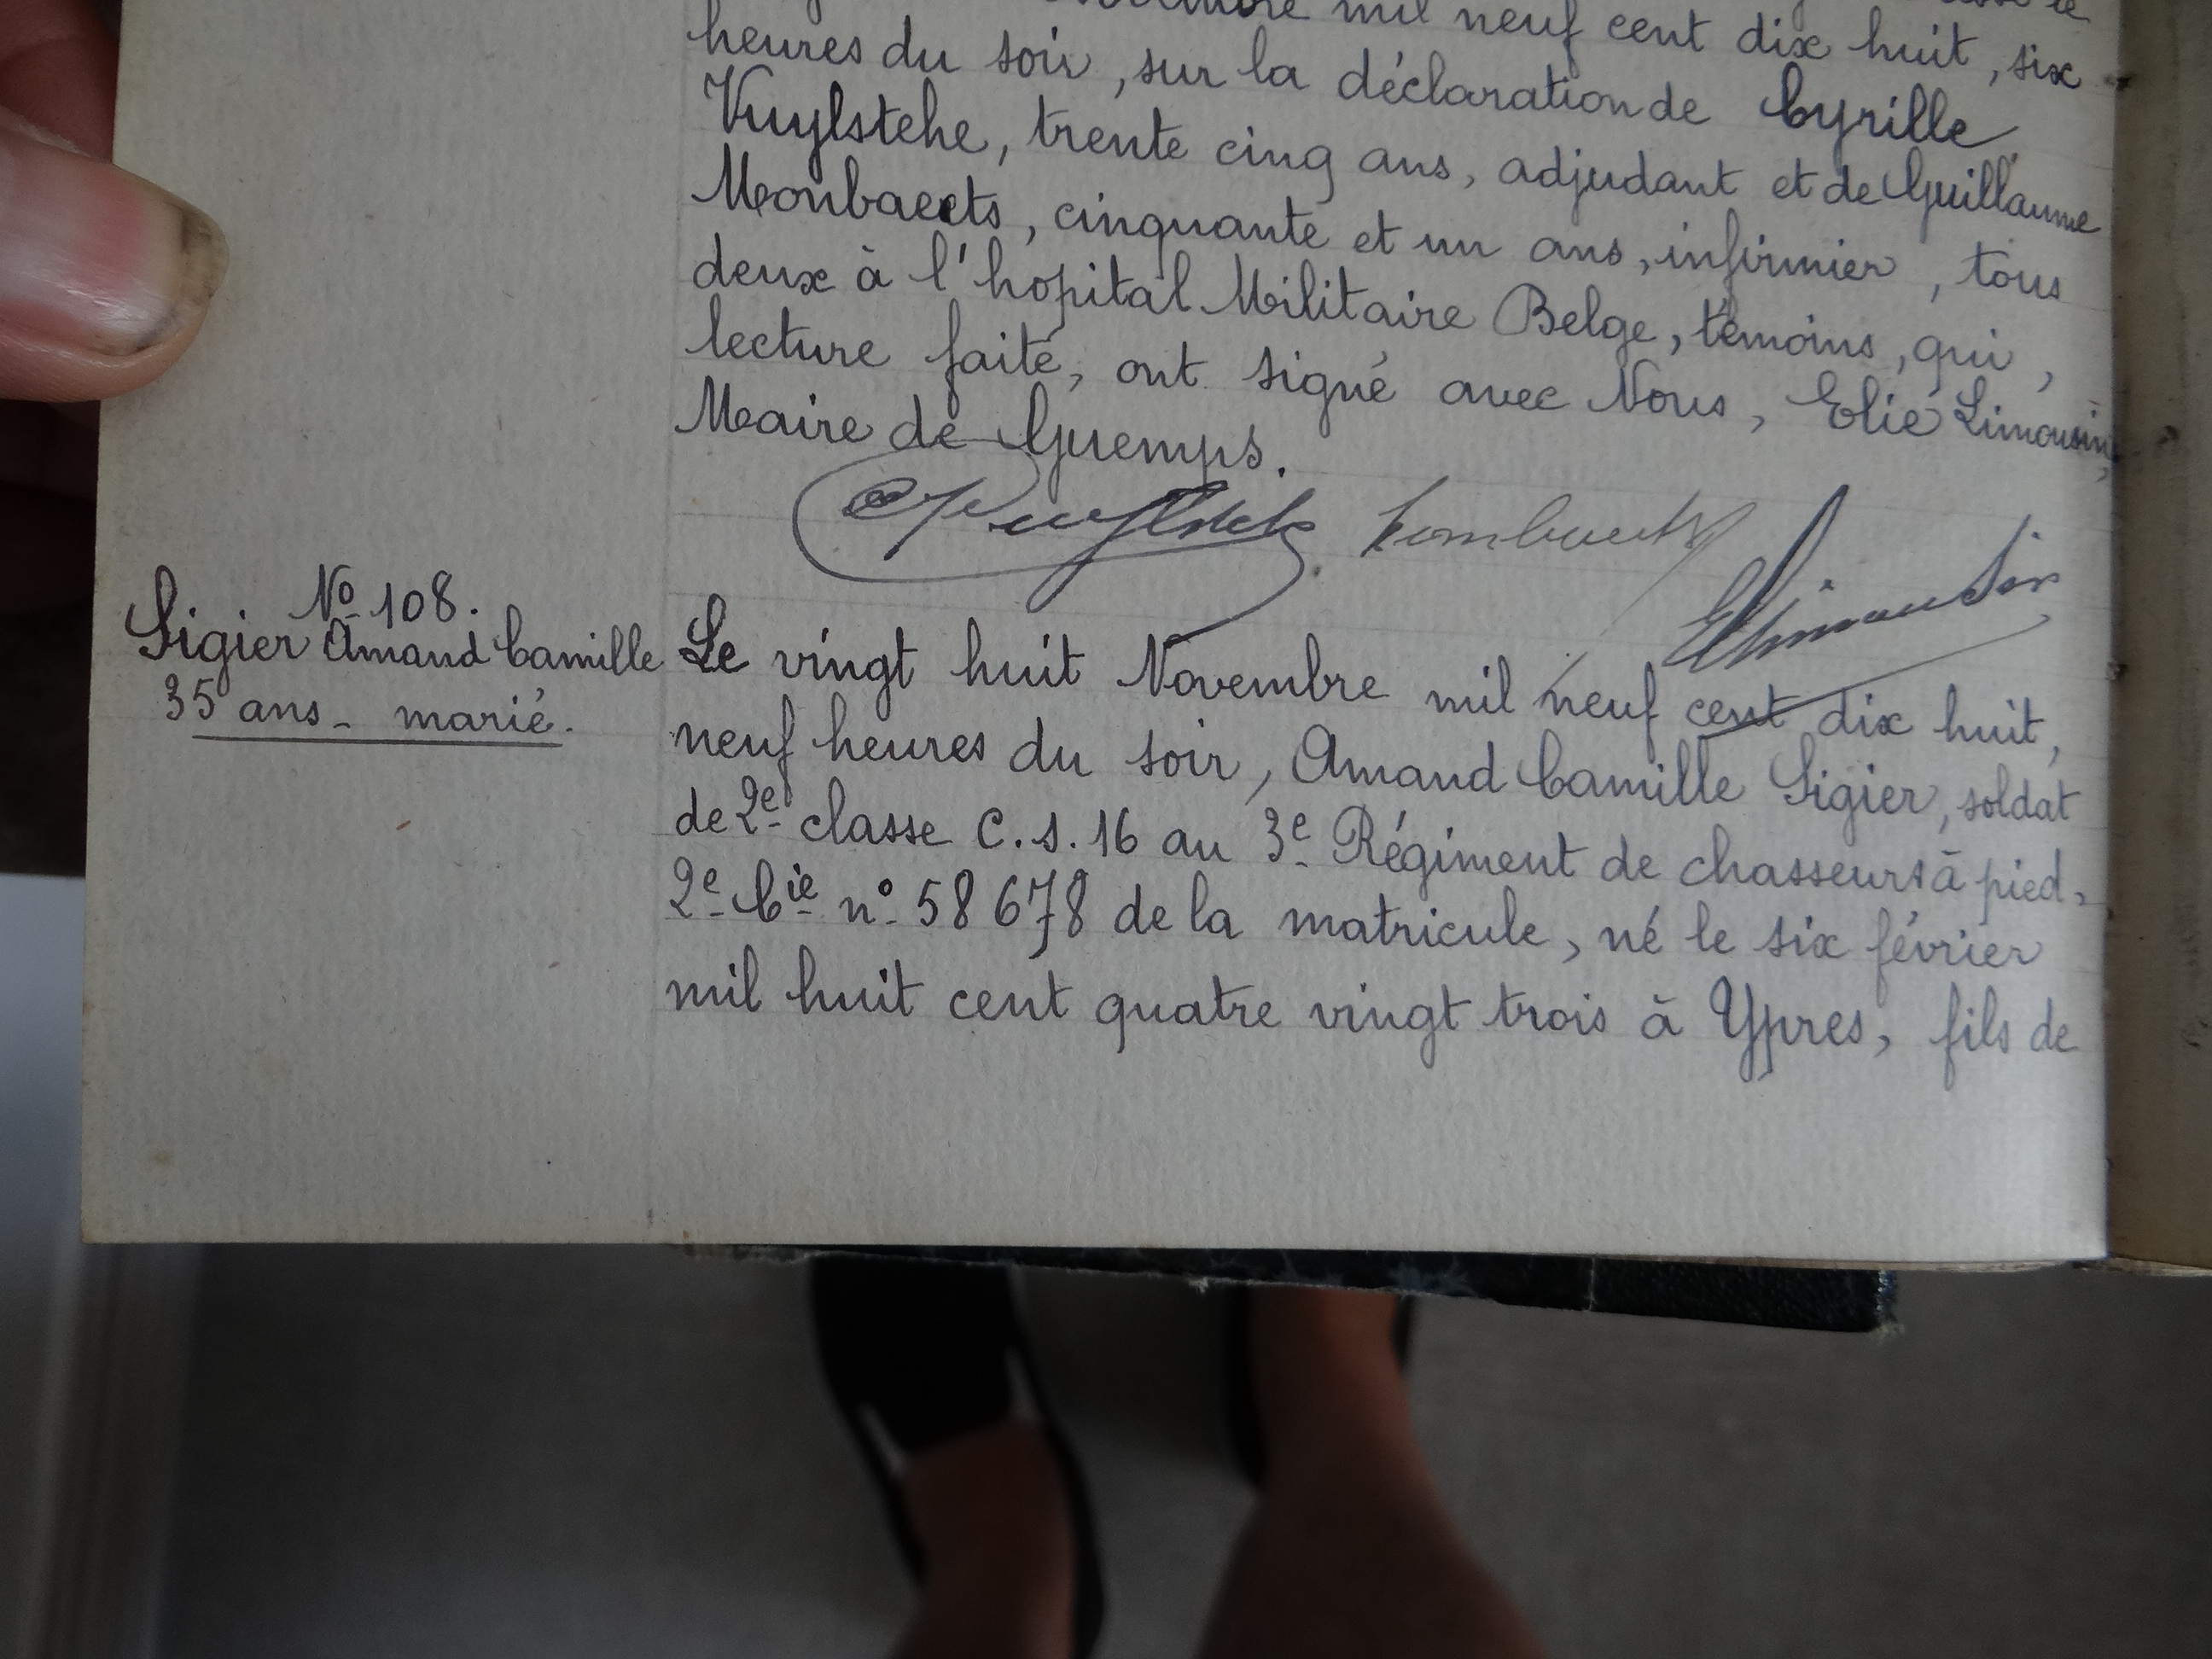 mil neuf cent dix huit, six
heures du soir, sur la déclaration de Cyrille
Vuylstehe, trente cinq ans, adjudant et de Guillaume
Monbaects, cinquante et un ans, infirmier, tous
deux à l'hopital Militaire Belge, témoins, qui,
lecture faite, ont signé avec Nous, Elie Limousin,
Maire de Guemps.
ELimousin
No 108.
Sigier Amand Camille
35 ans - marié.
Le vingt huit Novembre mil neuf cent dix huit,
neuf heures du soir, Amand Camille Sigier, soldat
de 2e classe C.s.16 au 3e Régiment de chasseurs à pied,
2e Cie no 58678 de la matricule, né le six février
mil huit cent quatre vingt trois à Ypres, fils de